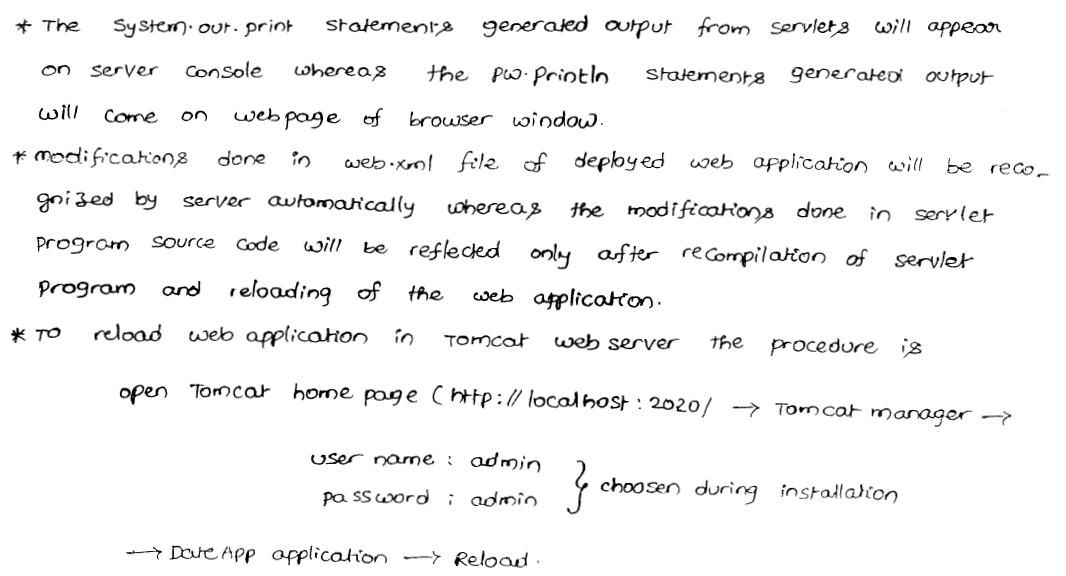 * The System.out.print statements generated output from servlets will appear
on server console whereas the pw.println statements generated output
will come on webpage of browser window.
* modifications done in web.xml file of deployed web application will be reco-
gnized by server automatically whereas the modifications done in servlet
program source code will be reflected only after recompilation of servlet
program and reloading of the web application.
* To reload web application in Tomcat web server the procedure is
open Tomcat home page (http://localhost:2020/ → Tomcat manager →
user name : admin
password : admin } choosen during installation
→ DateApp application → Reload.